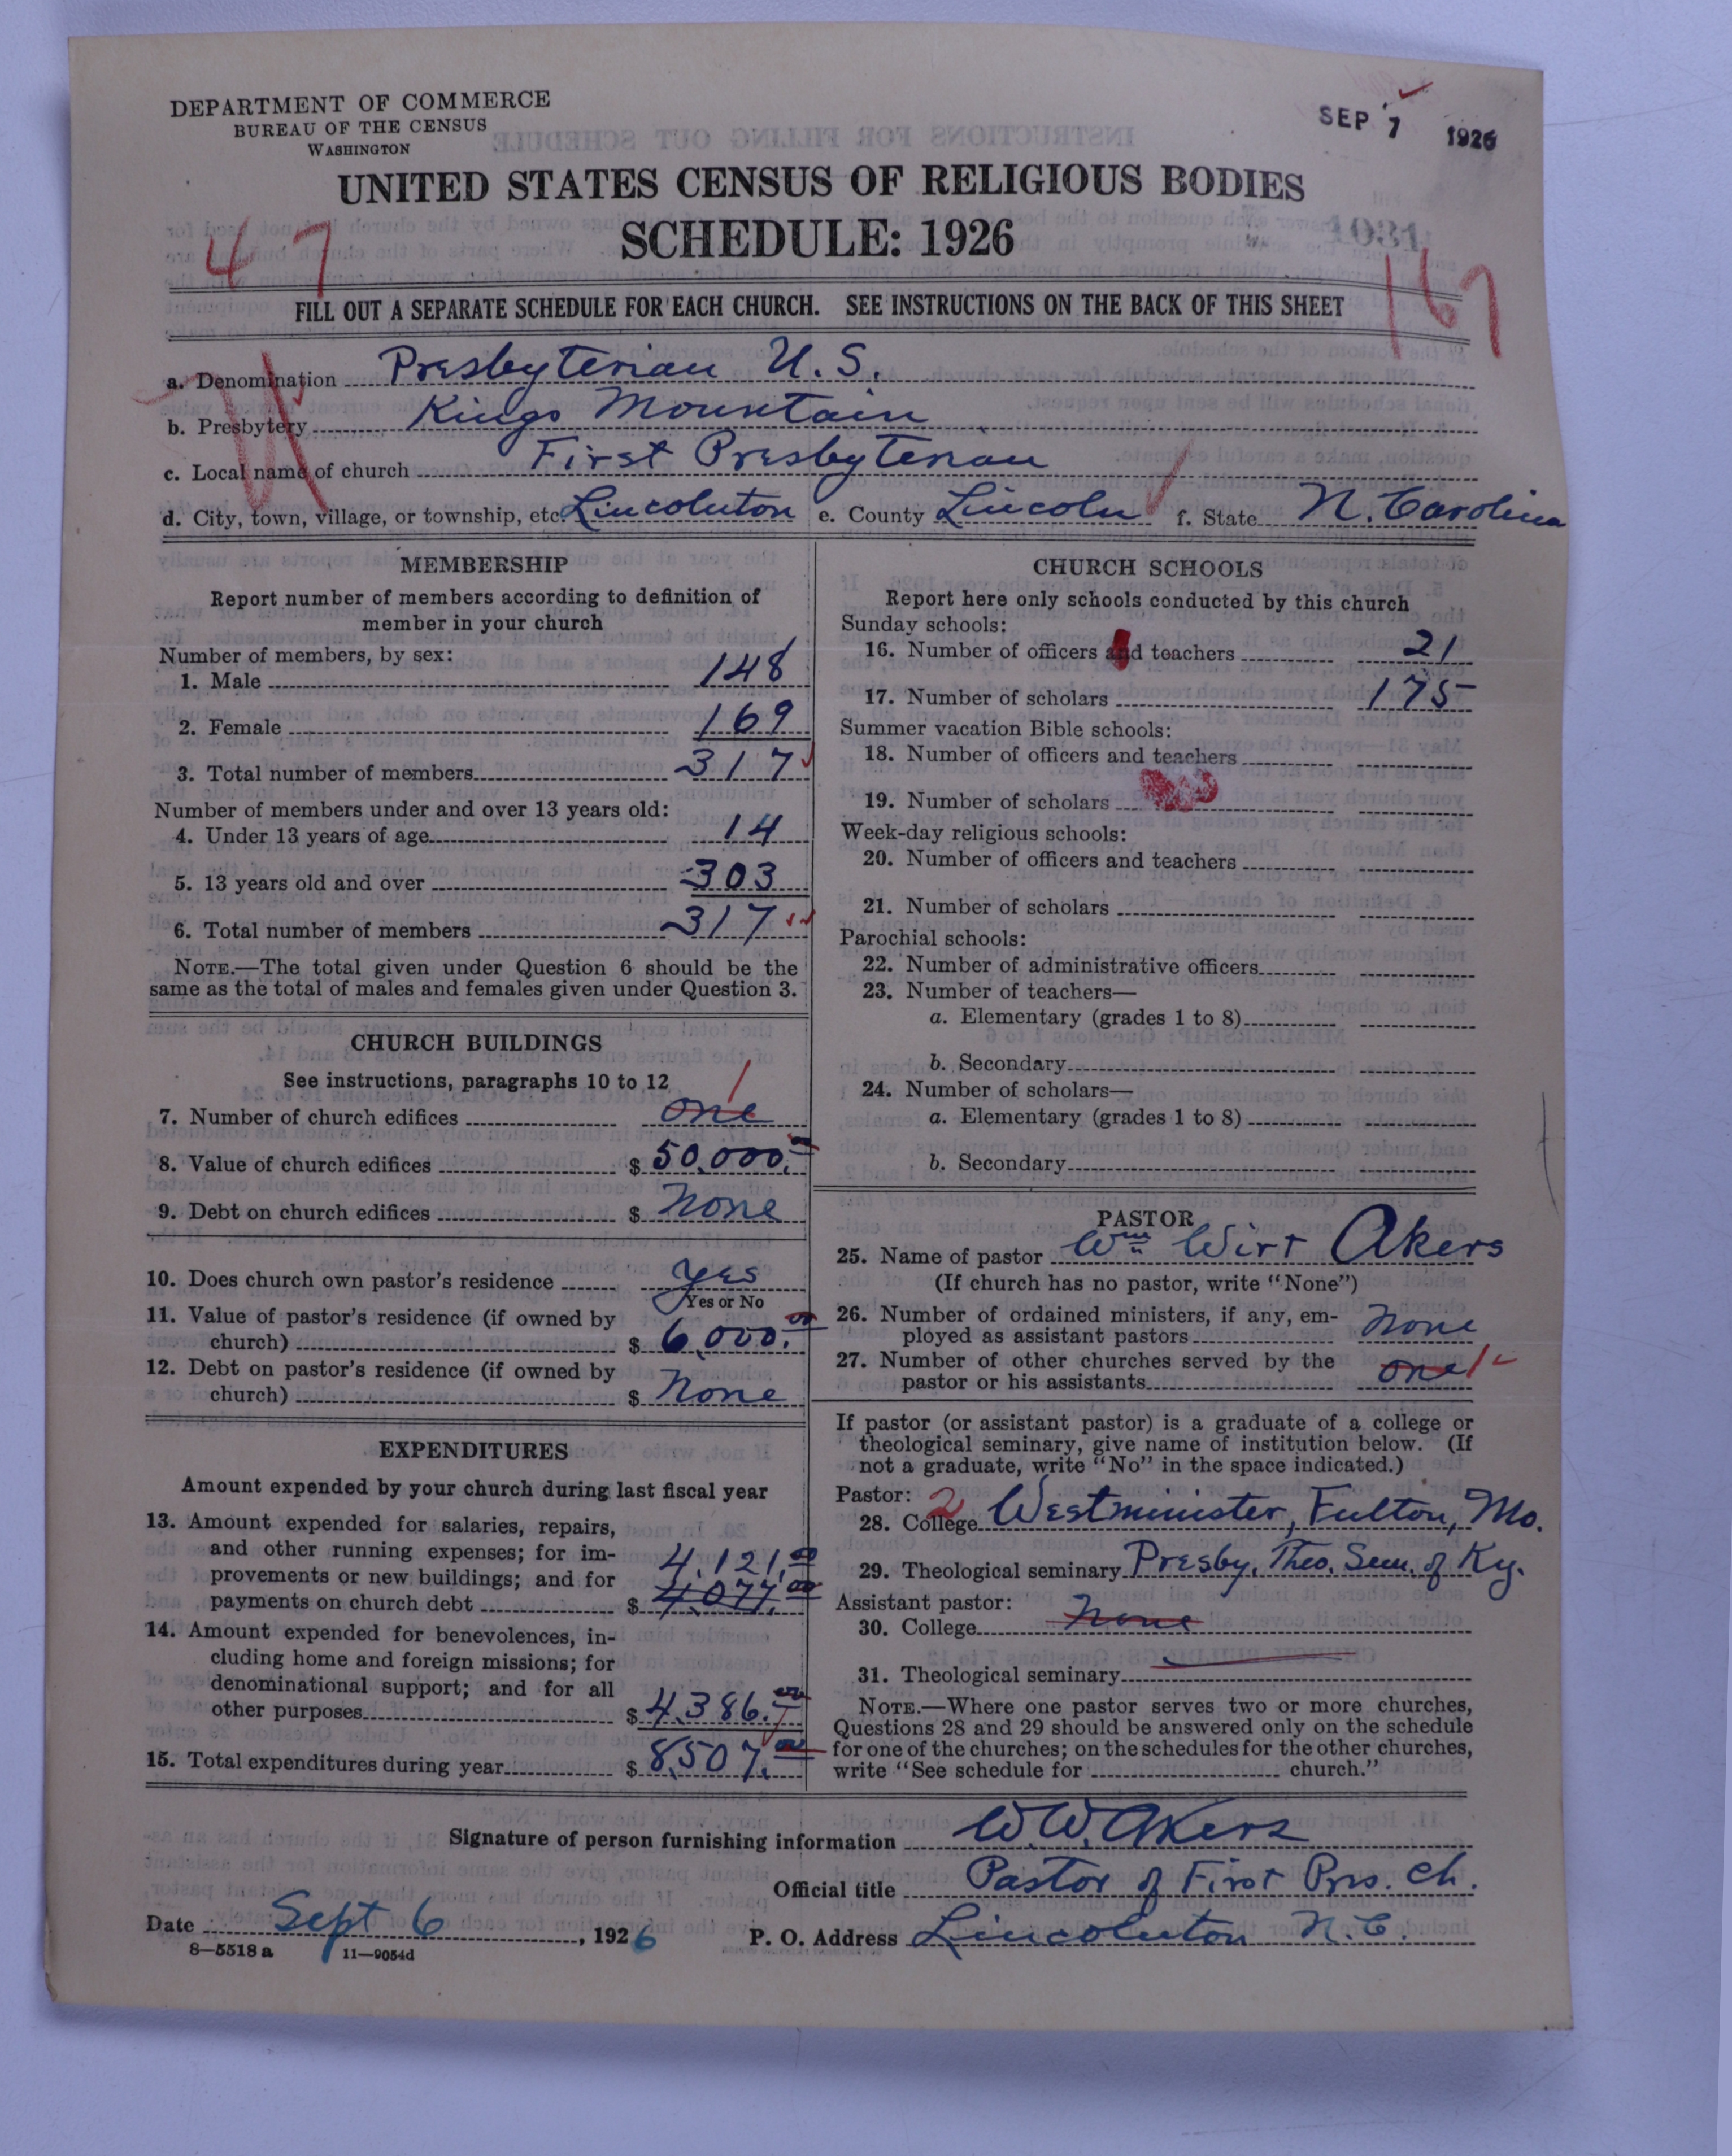 DEPARTMENT OF COMMERCE
BUREAU OF THE CENSUS
WASHINGTON
SEP 7 1926
UNITED STATES CENSUS OF RELIGIOUS BODIES
SCHEDULE: 1926
47
167
FILL OUT A SEPARATE SCHEDULE FOR EACH CHURCH. SEE INSTRUCTIONS ON THE BACK OF THIS SHEET
a. Denomination Presbyterian U.S.
b. Presbytery Kings Mountain
c. Local name of church First Presbyterian
d. City, town, village, or township, etc. Lincolnton e. County Lincoln f. State N. Carolina
MEMBERSHIP
Report number of members according to definition of
member in your church
Number of members, by sex:
1. Male 148
2. Female 169
3. Total number of members 317
Number of members under and over 13 years old:
4. Under 13 years of age 14
5. 13 years old and over 303
6. Total number of members 317
NOTE.—The total given under Question 6 should be the
same as the total of males and females given under Question 3.
CHURCH BUILDINGS
See instructions, paragraphs 10 to 12
1
7. Number of church edifices one
8. Value of church edifices $ 50,000.00
9. Debt on church edifices $ None
10. Does church own pastor's residence yes
Yes or No
11. Value of pastor's residence (if owned by
church) $ 6,000.00
12. Debt on pastor's residence (if owned by
church) $ None
EXPENDITURES
Amount expended by your church during last fiscal year
13. Amount expended for salaries, repairs,
and other running expenses; for im-
provements or new buildings; and for 4,121.00
payments on church debt $ 4,077.00
14. Amount expended for benevolences, in-
cluding home and foreign missions; for
denominational support; and for all
other purposes $ 4,386.00
15. Total expenditures during year $ 8,507.00
CHURCH SCHOOLS
Report here only schools conducted by this church
Sunday schools:
16. Number of officers and teachers 21
17. Number of scholars 175
Summer vacation Bible schools:
18. Number of officers and teachers
19. Number of scholars
Week-day religious schools:
20. Number of officers and teachers
21. Number of scholars
Parochial schools:
22. Number of administrative officers
23. Number of teachers—
a. Elementary (grades 1 to 8)
b. Secondary
24. Number of scholars—
a. Elementary (grades 1 to 8)
b. Secondary
PASTOR
25. Name of pastor Wm Wirt Akers
(If church has no pastor, write "None")
26. Number of ordained ministers, if any, em-
ployed as assistant pastors None
27. Number of other churches served by the
pastor or his assistants one 1
If pastor (or assistant pastor) is a graduate of a college or
theological seminary, give name of institution below. (If
not a graduate, write "No" in the space indicated.)
Pastor: 2
28. College Westminister, Fulton, Mo.
29. Theological seminary Presby. Theo. Sem. of Ky.
Assistant pastor:
30. College None
31. Theological seminary
NOTE.—Where one pastor serves two or more churches,
Questions 28 and 29 should be answered only on the schedule
for one of the churches; on the schedules for the other churches,
write "See schedule for church."
Signature of person furnishing information W.W. Akers
Official title Pastor of First Pres. Ch.
Date Sept 6, 1926 P. O. Address Lincolnton N.C.
8—5518 a 11—9054d